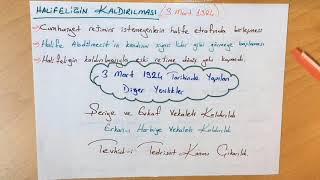 HALİFELİĞİN KALDIRILMASI (3 Mart 1924)
→ Cumhuriyet rejimini istemeyenlerin halife etrafında birleşmesi
→ Halife Abdülmecit'in kendisini siyasi lider gibi görmeye başlaması
→ Halifeliğin kaldırılmasıyla eski rejime dönüş yolu kapandı.
3 Mart 1924 Tarihinde Yapılan
Diğer Yenilikler
Şeriye ve Evkaf Vekaleti Kaldırıldı
Erkanı Harbiye Vekaleti Kaldırıldı
Tevhid-i Tedrisat Kanunu Çıkarıldı